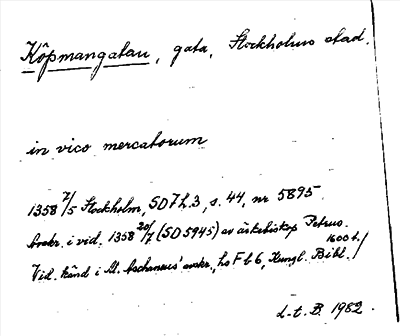 Köpmangatan, gata, Stockholms stad.
in vico mercatorum
1358 7/5 Stockholm, SD 7 h.3, s. 44, nr 5895.
Avskr. i vid. 1358 20/7 (SD 5945) av ärkebiskop Petrus.
Vid. känd i M. Aschaneus' avskr., hs F b 6, Kungl. Bibl. 1600 t./
L-t. B. 1982.